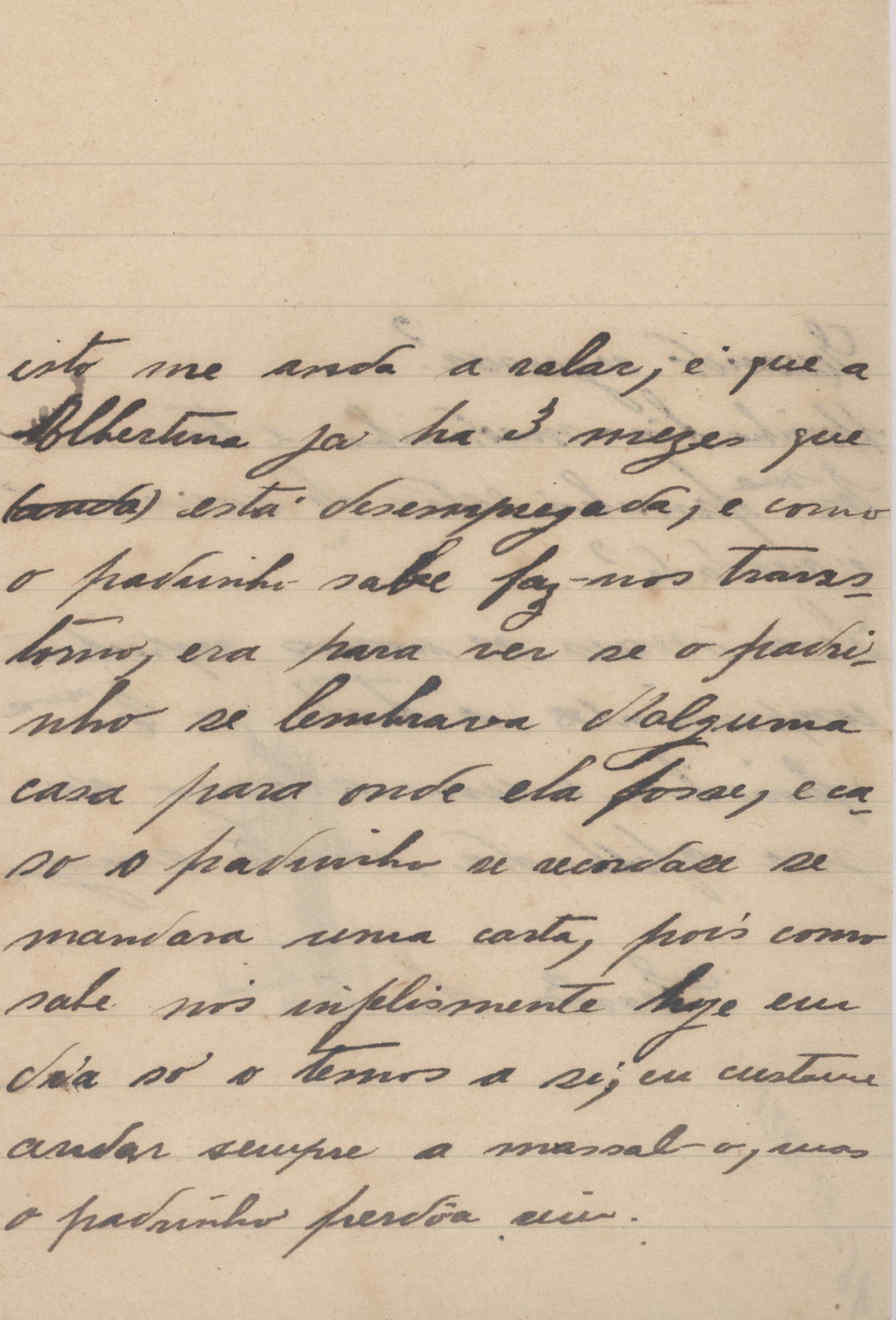 isto me anda a ralar, é que a
Albertina ja ha 3 mezes que
(anda) está desempregada, e como
o padrinho sabe faz-nos trans-
torno, era para ver se o padri-
nho se lembrava d'alguma
casa para onde ela fosse, e ca-
so o padrinho se recordase se
mandara uma carta, pois como
sabe nós infelismente hoje em
dia só o temos a si; eu custa-me
andar sempre a massal-o, mas
o padrinho perdôa sim.